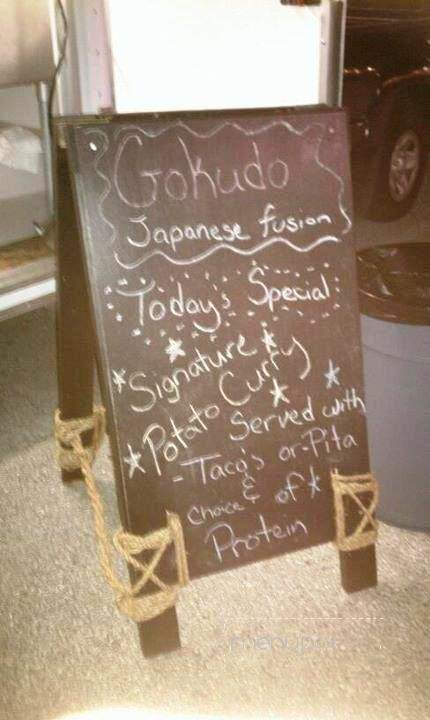 Gokudo
Japanese fusion
Today's Special
Signature
Potato Curry
Served with
-Taco's or-Pita
&
Choice of
Protein